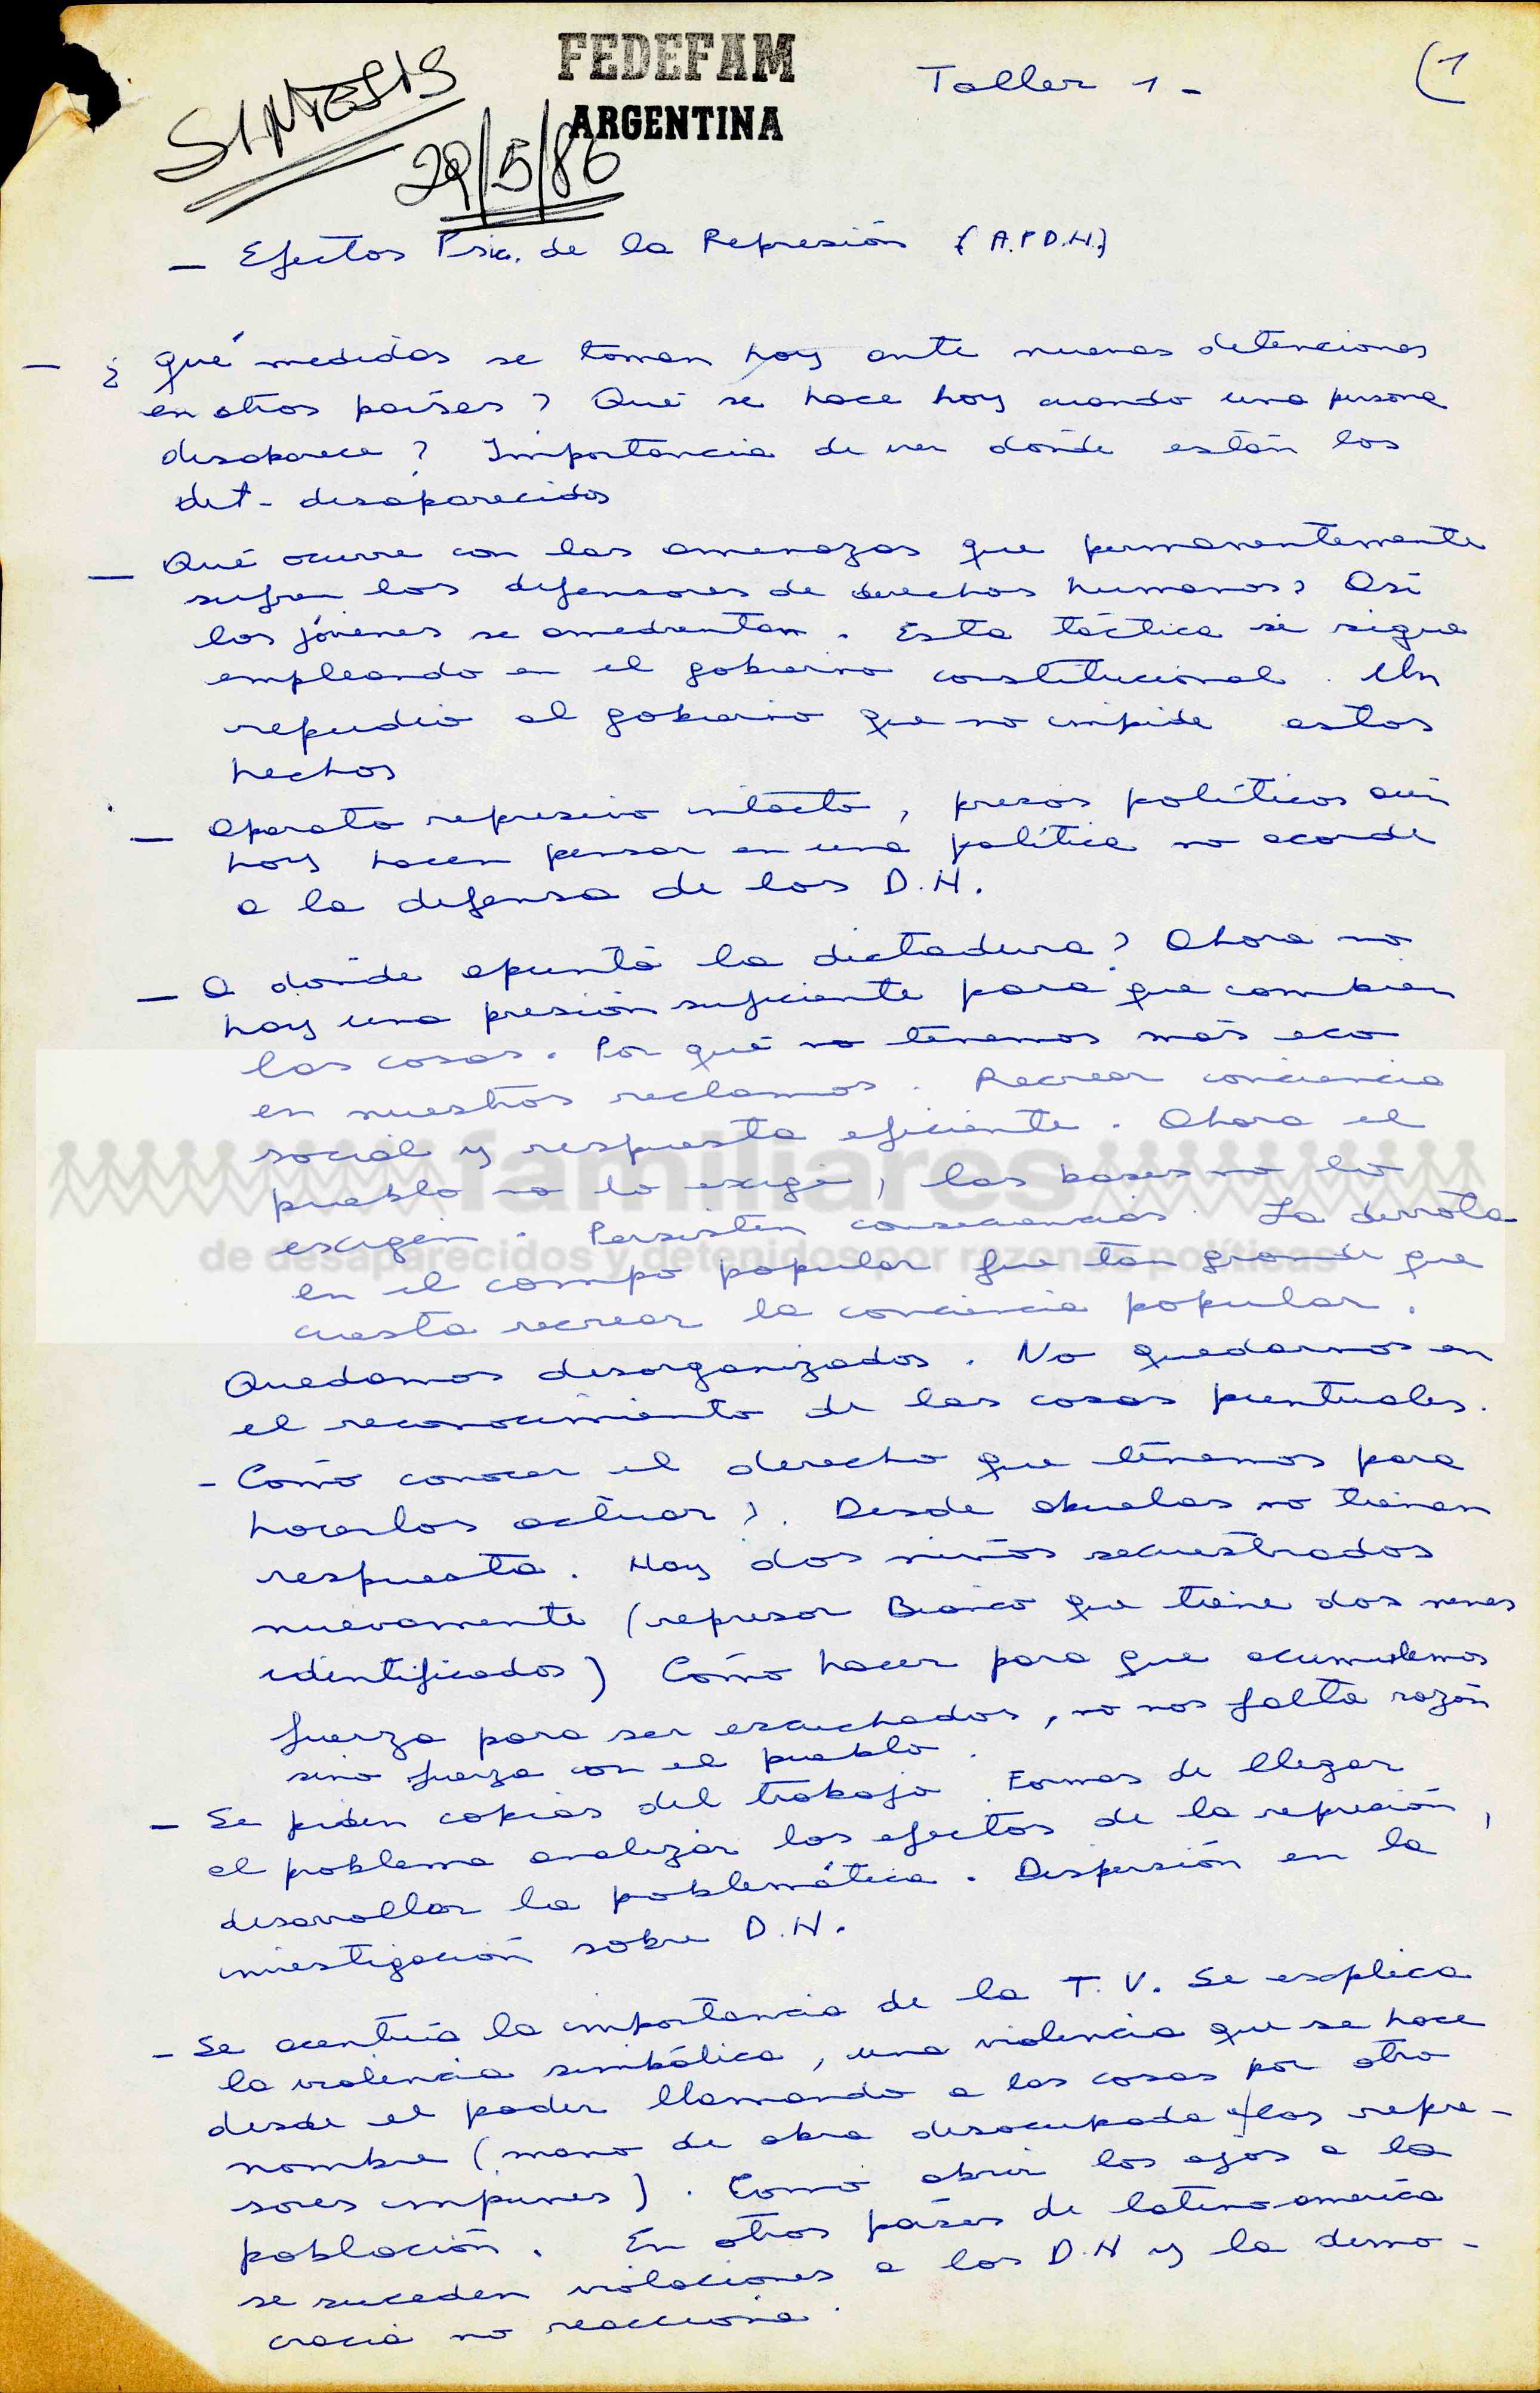 FEDEFAM
ARGENTINA
SINTESIS
29/5/86
Taller 1 -
(1
- Efectos Psic. de la Represión (A.P.D.H.)
- ¿ qué medidas se toman hoy ante nuevas detenciones
en otros países? Qué se hace hoy cuando una persona
desaparece? Importancia de ver dónde están los
det- desaparecidos
- Qué ocurre con las amenazas que permanentemente
sufren los defensores de derechos humanos? Así
los jóvenes se amedrentan. Esta táctica se sigue
empleando en el gobierno constitucional. Un
repudio al gobierno que no impide estos
hechos
- Aparato represivo intacto, presos políticos aún
hoy hacen pensar en una política no acorde
a la defensa de los D.H.
- A dónde apunta la dictadura? Ahora no
hay una presión suficiente para que cambien
las cosas. Por qué no tenemos más eco
en nuestros reclamos. Recrear conciencia
social y respuesta eficiente. Ahora el
pueblo no lo exige, las bases no lo
exigen. Persisten consecuencias. La derrota
en el campo popular fue tan grande que
cuesta recrear la conciencia popular.
Quedamos desorganizados. No quedarnos en
el reconocimiento de las cosas puntuales.
- Cómo conocer el derecho que tenemos para
hacerlos actuar?. Desde abuelas no tienen
respuesta. Hay dos niños secuestrados
nuevamente (represor Bianco que tiene dos nenes
identificados) Cómo hacer para que acumulemos
fuerza para ser escuchados, no nos falta razón
sino fuerza con el pueblo.
- Se piden copias del trabajo. Formas de llegar
al problema analizar los efectos de la represión,
desarrollar la problemática. Dispersión en la
investigación sobre D.H.
- Se acentúa la importancia de la T.V. Se explica
la violencia simbólica, una violencia que se hace
desde el poder llamando a las cosas por otro
nombre (mano de obra desocupada a/los repre-
sores impunes). Cómo abrir los ojos a la
población. En otros países de latinoamerica
se suceden violaciones a los D.H y la demo-
cracia no reacciona.
familiares
de desaparecidos y detenidos por razones políticas